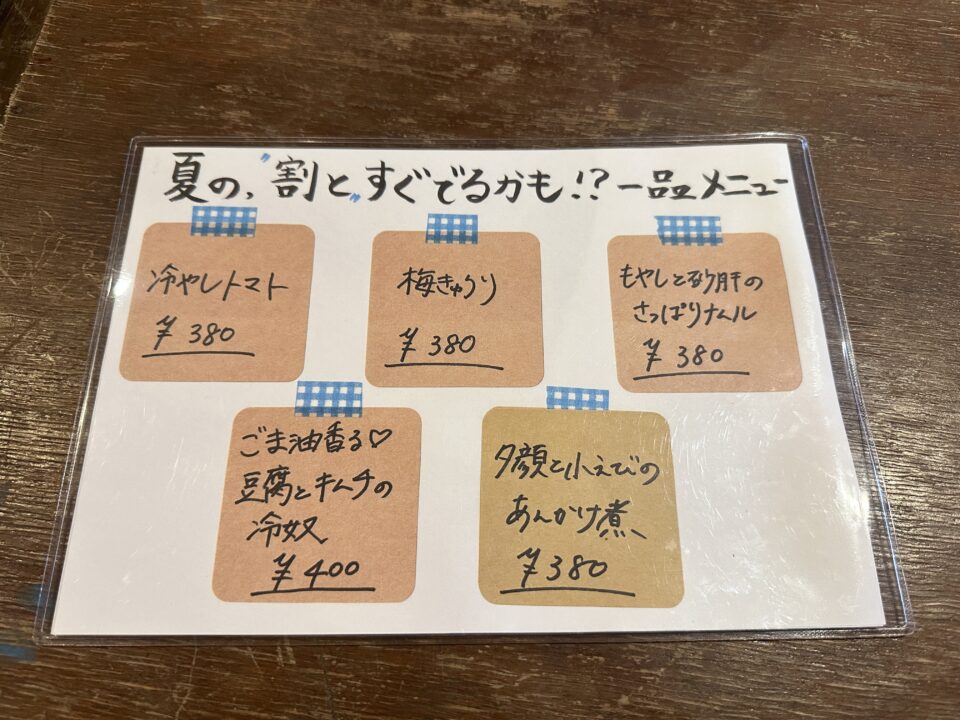 夏の、"割と"すぐでるかも!?一品メニュー
冷やしトマト
¥380
梅きゅうり
¥380
もやしと砂肝の
さっぱりナムル
¥380
ごま油香る♡
豆腐とキムチの
冷奴
¥400
夕顔と小えびの
あんかけ煮
¥380